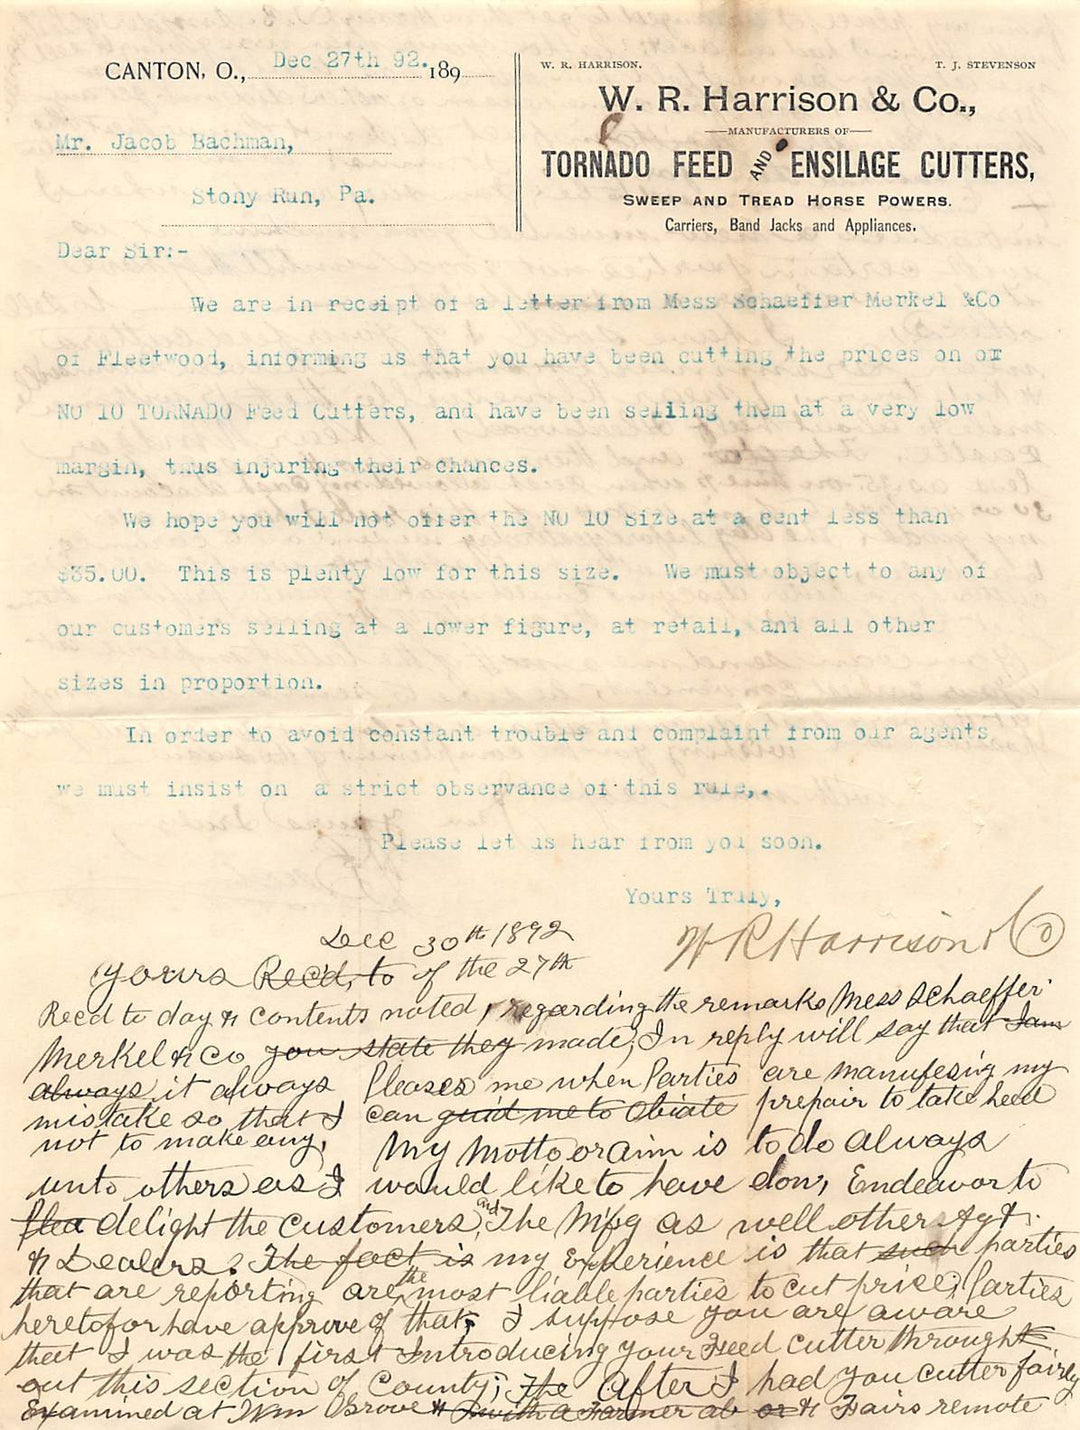 CANTON, O., Dec 27th 92. 189
W. R. HARRISON. T. J. STEVENSON
W. R. Harrison & Co.,
MANUFACTURERS OF
TORNADO FEED AND ENSILAGE CUTTERS,
SWEEP AND TREAD HORSE POWERS.
Carriers, Band Jacks and Appliances.
Mr. Jacob Bachman,
Stony Run, Pa.
Dear Sir:-
We are in receipt of a letter from Mess Schaeffer Merkel &Co
of Fleetwood, informing us that you have been cutting the prices on or
NO 10 TORNADO Feed Cutters, and have been selling them at a very low
margin, thus injuring their chances.
We hope you will not offer the NO 10 Size at a cent less than
$35.00. This is plenty low for this size. We must object to any of
our customers selling at a lower figure, at retail, and all other
sizes in proportion.
In order to avoid constant trouble and complaint from our agents
we must insist on a strict observance of this rule,.
Please let us hear from you soon.
Yours Truly,
W R Harrison & Co
Dec 30th 1892
Yours Rec'd, to of the 27th
Recd to day & contents noted, regarding the remarks Mess Schaeffer
Merkel & Co you state they made, In reply will say that I am
always it always pleases me when Parties are manufesing my
mistake so that I can guid me to Obiate prepair to take heed
not to make any, My Motto or aim is to do always
unto others as I would like to have don, Endeavor to
delight the customers, and The Mfg as well other Agt.
& Dealers. The fact is my Experience is that such parties
that are reporting are the most liable parties to cut price, Parties
heretofor have approve of that, I suppose you are aware
that I was the first Introducing your Feed cutter through
out this section of County; The After I had you cutter fairly
Examined at Wm Grove & with a Farmer ab or & Fairs remote